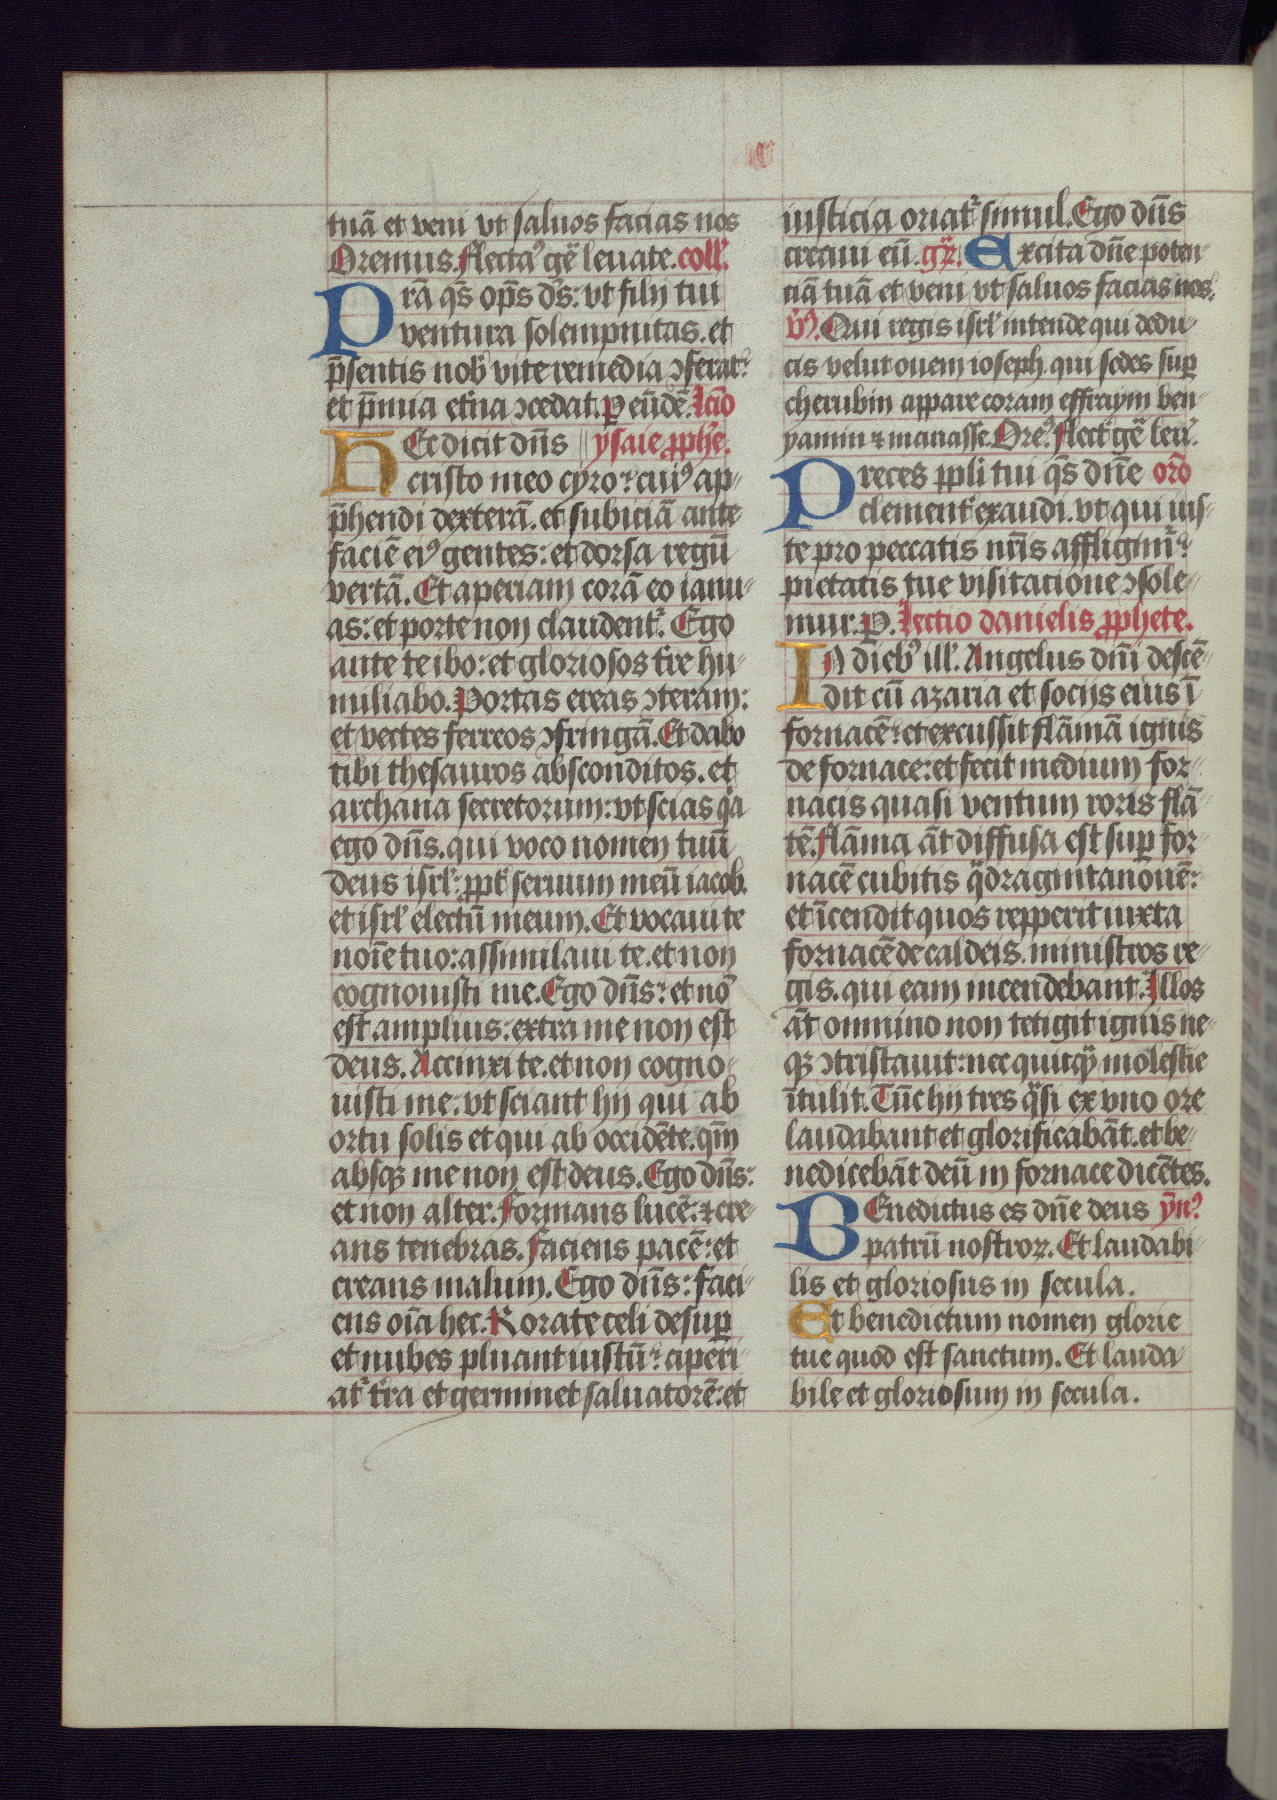 tuā et veni vt saluos facias nos
Oremus. flectaꝰ gē leuate. coll'.
Pra qs̄ op̄s ds̄: vt filij tui
ventura solempnitas. et
p̄sentis nob' vite remedia ↄferat:
et p̄mia et̄na ↄcedat. ꝑ eūdē. lcō
Hec dicit dn̄s ysaie ꝓph'e.
cristo meo cyro: cuiꝰ ap-
p̄hendi dexterā. et subiciā ante
faciē eiꝰ gentes: et dorsa regū
vertā. Et aperiam corā eo ianu-
as: et porte non claudent'. Ego
ante te ibo: et gloriosos t're hu-
miliabo. Portas ereas ↄteram:
et vectes ferreos ↄfringā. Et dabo
tibi thesauros absconditos. et
archana secretorum: vt scias q'a
ego dn̄s. qui voco nomen tuū
deus isrl': ꝓpt' seruum meū iacob.
et isrl' electū meum. Et vocaui te
noīe tuo: assimilaui te. et non
cognouisti me. Ego dn̄s: et nō
est amplius: extra me non est
deus. Accinxi te. et non cogno-
uisti me: vt sciant hij qui ab
ortu solis et qui ab occidēte. qm̄
absqꝫ me non est deus. Ego dn̄s:
et non alter. formans lucē: ⁊ cre-
ans tenebras. faciens pacē: et
creans malum. Ego dn̄s: faci-
ens oīa hec. Rorate celi desuꝑ
et nubes pluant iustū: aperi-
at' t'ra et germinet saluatorē: et
iusticia oriat' simul. Ego dn̄s
creaui eū. gr̄. Excita dn̄e poten-
ciā tuā et veni vt saluos facias nos.
v̄ꝰ. Qui regis isrl' intende qui dedu-
cis velut ouem ioseph. qui sedes suꝑ
cherubin appare coram effraym ben-
yamin ⁊ manasse. Ore'. flect' gē leu'.
Preces ppli tui qs̄ dn̄e or̄o
clement' exaudi. vt qui ius-
te pro peccatis nr̄is affligim':
pietatis tue visitacione ↄsole-
mur. ꝑ. lectio danielis ꝓphete.
In dieb' ill'. Angelus dn̄i descē-
dit cū azaria et socijs eius ī
fornacē: et excussit flāmā ignis
de fornace: et fecit medium for-
nacis quasi ventum roris flā-
tē. flāma āt diffusa est suꝑ for-
nacē cubitis q'draginta nouē:
et īcendit quos repperit iuxta
fornacē de caldeis. ministros re-
gis. qui eam incendebant. Illos
āt omnino non tetigit ignis ne-
qꝫ ↄtristauit: nec quitqꝫ molestie
ītulit. Tūc hij tres q'si ex vno ore
laudabant et glorificabāt. et be-
nedicebāt deū in fornace dicētes.
Benedictus es dn̄e deus ym̄ꝰ
patrū nostroꝝ. Et laudabi-
lis et gloriosus in secula.
Et benedictum nomen glorie
tue quod est sanctum. Et lauda-
bile et gloriosum in secula.